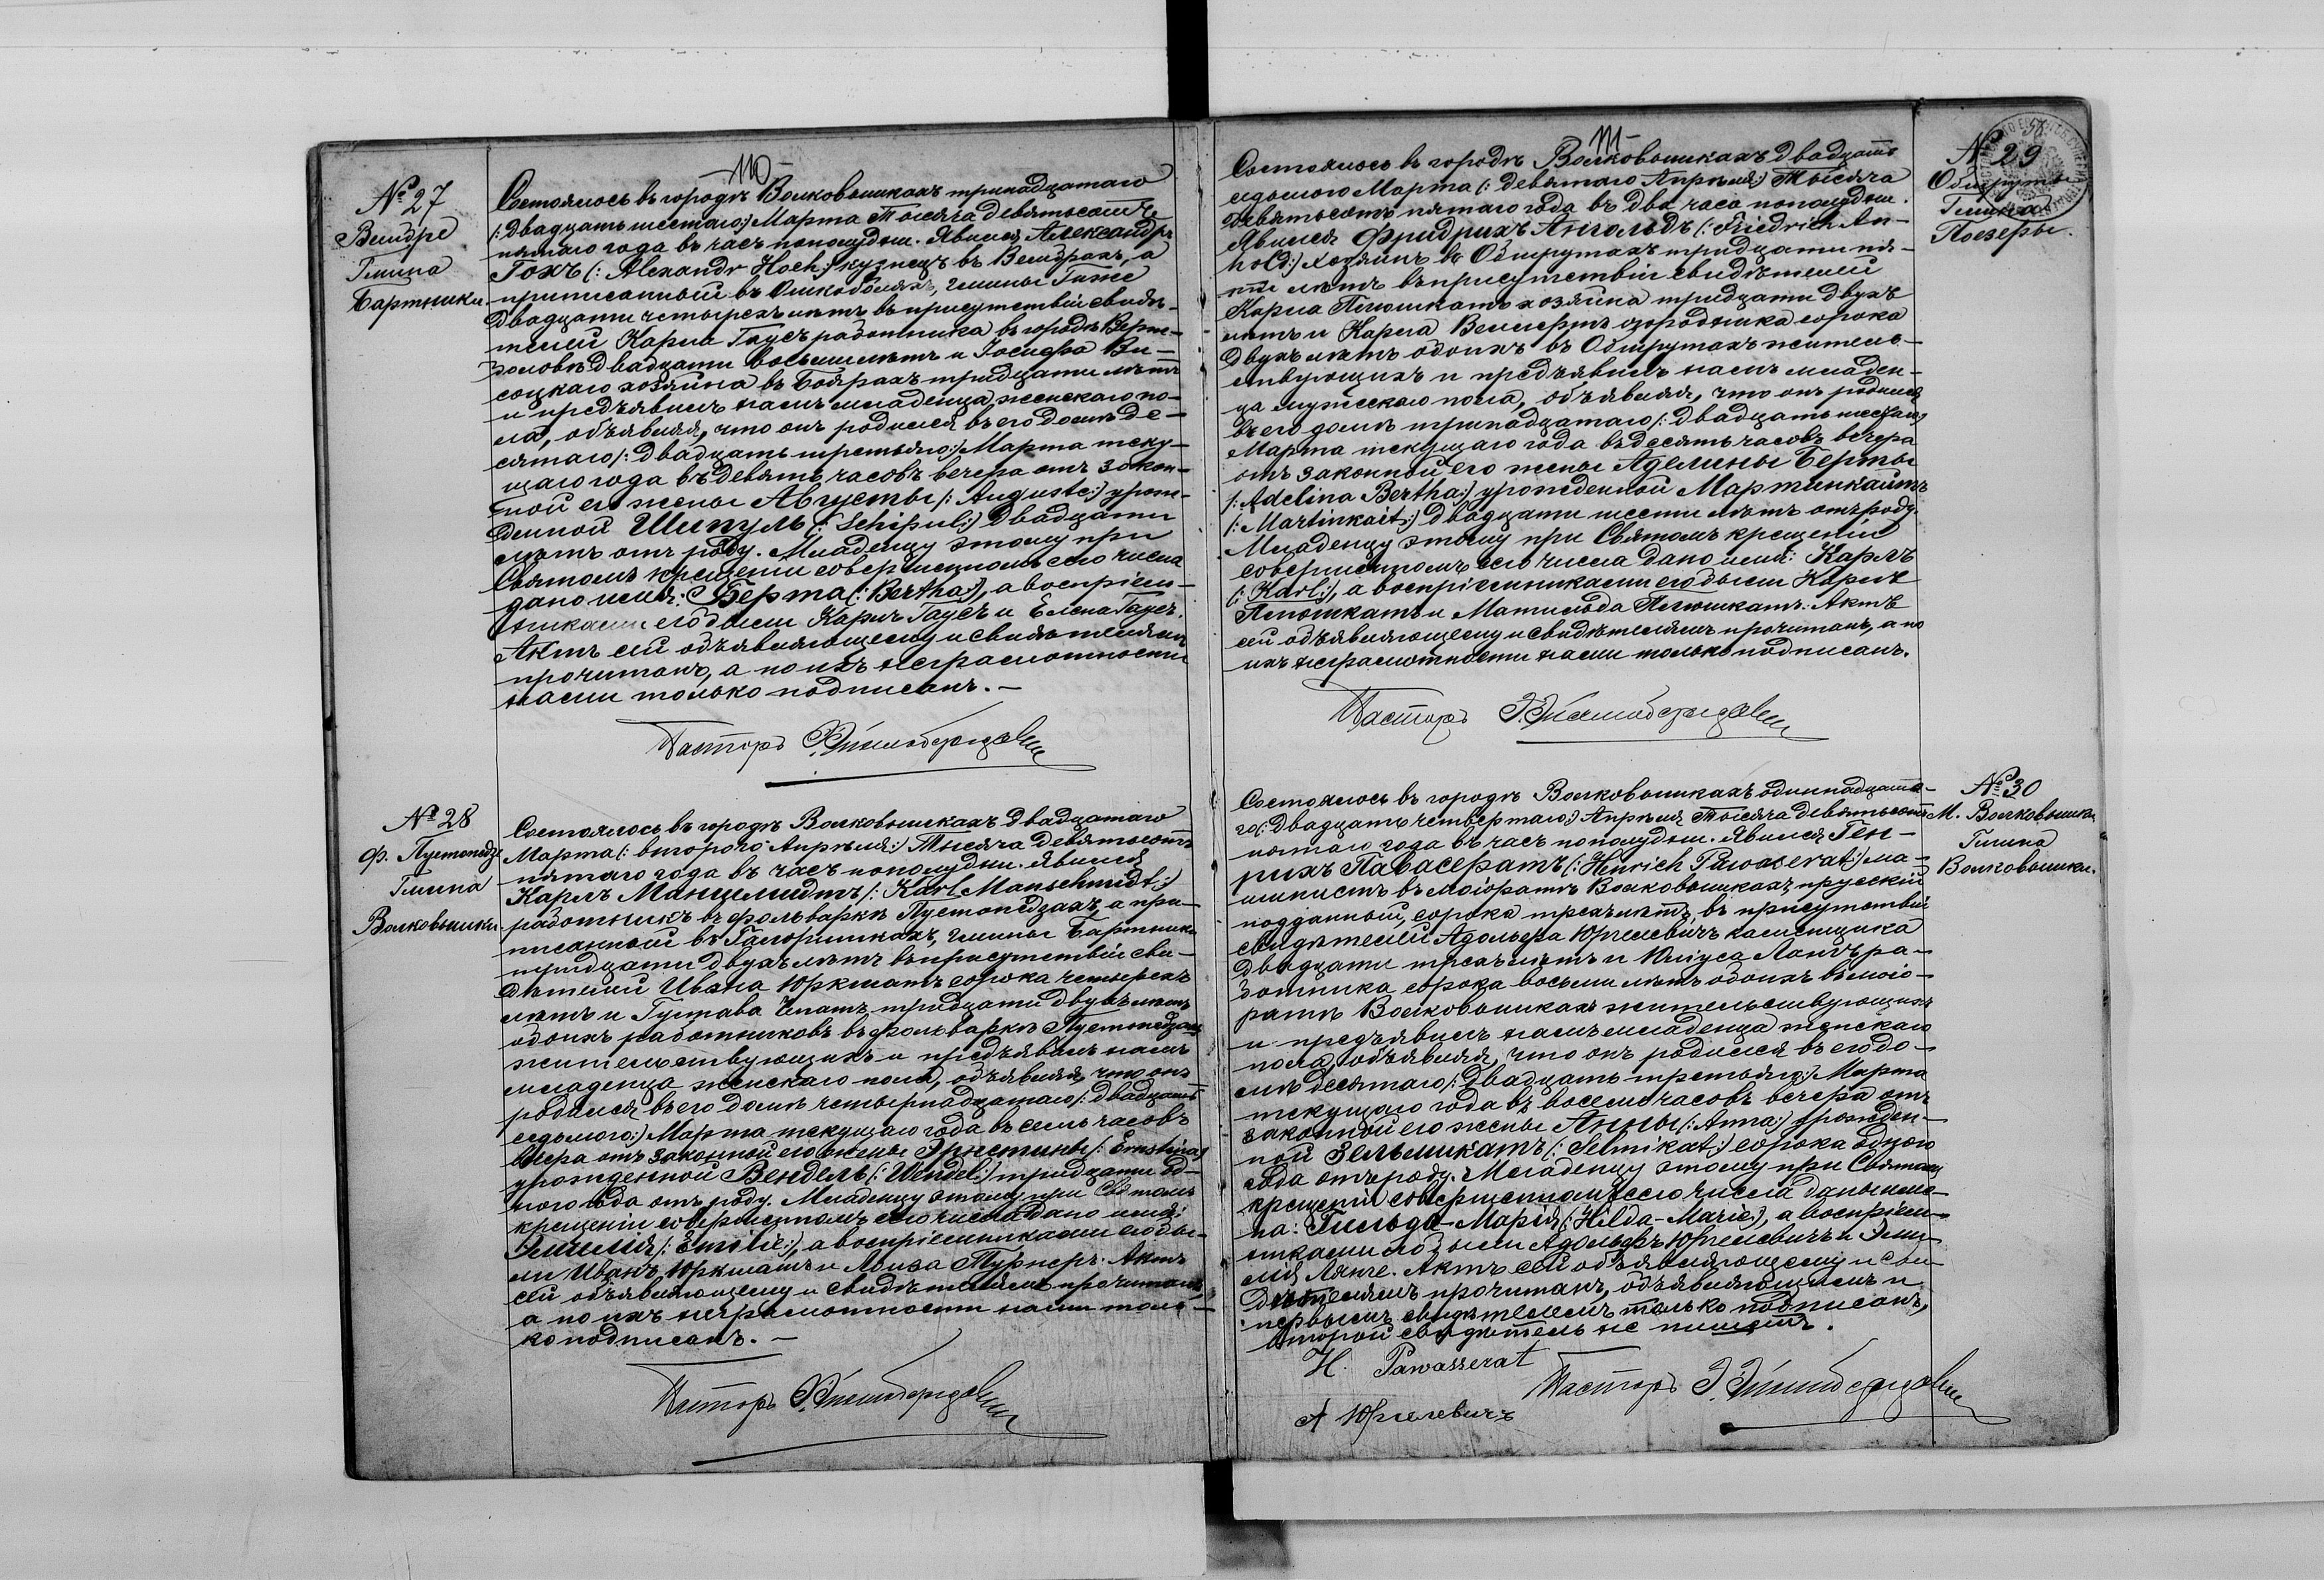 110
№ 27
Вендре
Гмина
Бартники.
Состоялось въ городѣ Волковышкахъ тринадцатаго
(: двадцать шестаго:) Марта Тысяча девятьсотъ
пятаго года въ часъ пополудни. Явился Александръ
Гохъ (: Alexandr Hoch:) кузнецъ въ Вендрахъ, а
приписанный въ Олькоболяхъ, гмины Гиже
двадцати четырехъ лѣтъ въ присутствіи свидѣ-
телей Карла Гаусъ работника въ городѣ Верж-
боловѣ двадцати восьми лѣтъ и Іосифа Ви-
соцкаго хозяина въ Боярахъ тридцати лѣтъ
и предъявилъ намъ младенца женскаго по-
ла, объявляя, что онъ родился въ его домѣ де-
сятаго (: двадцать третьяго:) Марта теку-
щаго года въ девять часовъ вечера отъ закон-
ной его жены Августы (: Auguste:) урож-
денной Шипуль (: Schipul:) двадцати
лѣтъ отъ роду. Младенцу этому при
Святомъ крещеніи совершенномъ сего числа
дано имя: Берта (: Bertha:), а воспріем-
никами его были Карлъ Гаусъ и Елена Гаусъ.
Актъ сей объявляющему и свидѣтелямъ
прочитанъ, а по ихъ неграмотности
нами только подписанъ. —
Пасторъ
№ 28
Ф. Пустопедзе
Гмина
Волковышки
Состоялось въ городѣ Волковышкахъ двадцатаго
Марта (: втораго Апрѣля:) Тысяча девятьсотъ
пятаго года въ часъ пополудни. Явился
Карлъ Маншмидтъ (: Karl Manschmidt:)
работникъ въ фольваркѣ Пустопедзахъ, а при-
писанный въ Галкоришкахъ, гмины Бартники
тридцати двухъ лѣтъ въ присутствіи сви-
дѣтелей Ивана Юркшатъ сорока четырехъ
лѣтъ и Густава тридцати двухъ лѣтъ
обоихъ работниковъ въ фольваркѣ Пустопедзахъ
жительствующихъ и предъявилъ намъ
младенца женскаго пола, объявляя, что онъ
родился въ его домѣ четырнадцатаго (: двадцать
седьмого:) Марта текущаго года въ семь часовъ
вечера отъ законной его жены Эрнестины (: Ernstina:)
урожденной Вендель (: Wendel:) тридцати од-
ного года отъ роду. Младенцу этому при Святомъ
крещеніи совершенномъ сего числа дано имя:
Эмилія (: Emilie:), а воспріемниками его бы-
ли Иванъ Юркшатъ и Луиза Турнеръ. Актъ
сей объявляющему и свидѣтелямъ прочитанъ,
а по ихъ неграмотности нами толь-
ко подписанъ. —
Пасторъ
111
№ 29
Обшруты
Гмина
Поезеры.
Состоялось въ городѣ Волковышкахъ двадцать
седьмого Марта (: девятаго Апрѣля:) Тысяча
девятьсотъ пятаго года въ два часа пополудни.
Явился Фридрихъ Ангольдъ (: Friedrich An-
hold:) хозяинъ въ Обшрутахъ тридцати пя-
ти лѣтъ въ присутствіи свидѣтелей
Карла Плюшкатъ хозяина тридцати двухъ
лѣтъ и Карла Веллертъ огородника сорока
двухъ лѣтъ обоихъ въ Обшрутахъ житель-
ствующихъ и предъявилъ намъ младен-
ца мужескаго пола, объявляя, что онъ родился
въ его домѣ тринадцатаго (: двадцать шестаго:)
Марта текущаго года въ десять часовъ вечера
отъ законной его жены Аделины Берты
(: Adelina Bertha:) урожденной Мартинкайтъ
(: Martinkait:) двадцати шести лѣтъ отъ роду.
Младенцу этому при Святомъ крещеніи
совершенномъ сего числа дано имя: Карлъ
(: Karl:), а воспріемниками его были Карлъ
Плюшкатъ и Матильда Плюшкатъ. Актъ
сей объявляющему и свидѣтелямъ прочитанъ, а по
ихъ неграмотности нами только подписанъ.
Пасторъ
№ 30
М. Волковышки
Гмина
Волковышки.
Состоялось въ городѣ Волковышкахъ одиннадцата-
го (: двадцать четвертаго:) Апрѣля Тысяча девятьсотъ
пятаго года въ часъ пополудни. Явился Ген-
рихъ Павасератъ (: Henrich Pawaserat:) ма-
шинистъ въ маіоратѣ Волковышкахъ прусскій
подданный, сорока трехъ лѣтъ, въ присутствіи
свидѣтелей Адольфа Юргелевичъ каменщика
двадцати трехъ лѣтъ и Юліуса Ланге ра-
ботника сорока восьми лѣтъ обоихъ въ маіо-
ратѣ Волковышкахъ жительствующихъ
и предъявилъ намъ младенца женскаго
пола, объявляя, что онъ родился въ его до-
мѣ десятаго (: двадцать третьяго:) Марта
текущаго года въ восемь часовъ вечера отъ
законной его жены Анны (: Anna:) урожден-
ной Зельмикатъ (: Selmikat:) сорока одного
года отъ роду. Младенцу этому при Святомъ
крещеніи совершенномъ сего числа даны име-
на: Гильда-Марія (: Hilda-Marie:), а воспріем-
никами его были Адольфъ Юргелевичъ и Эми-
лія Ланге. Актъ сей объявляющему и сви-
дѣтелямъ прочитанъ, объявляющимъ и
первымъ свидѣтелемъ только подписанъ,
второй свидѣтель не пишетъ.
H. Pawasserat
Пасторъ
А Юргелевичъ